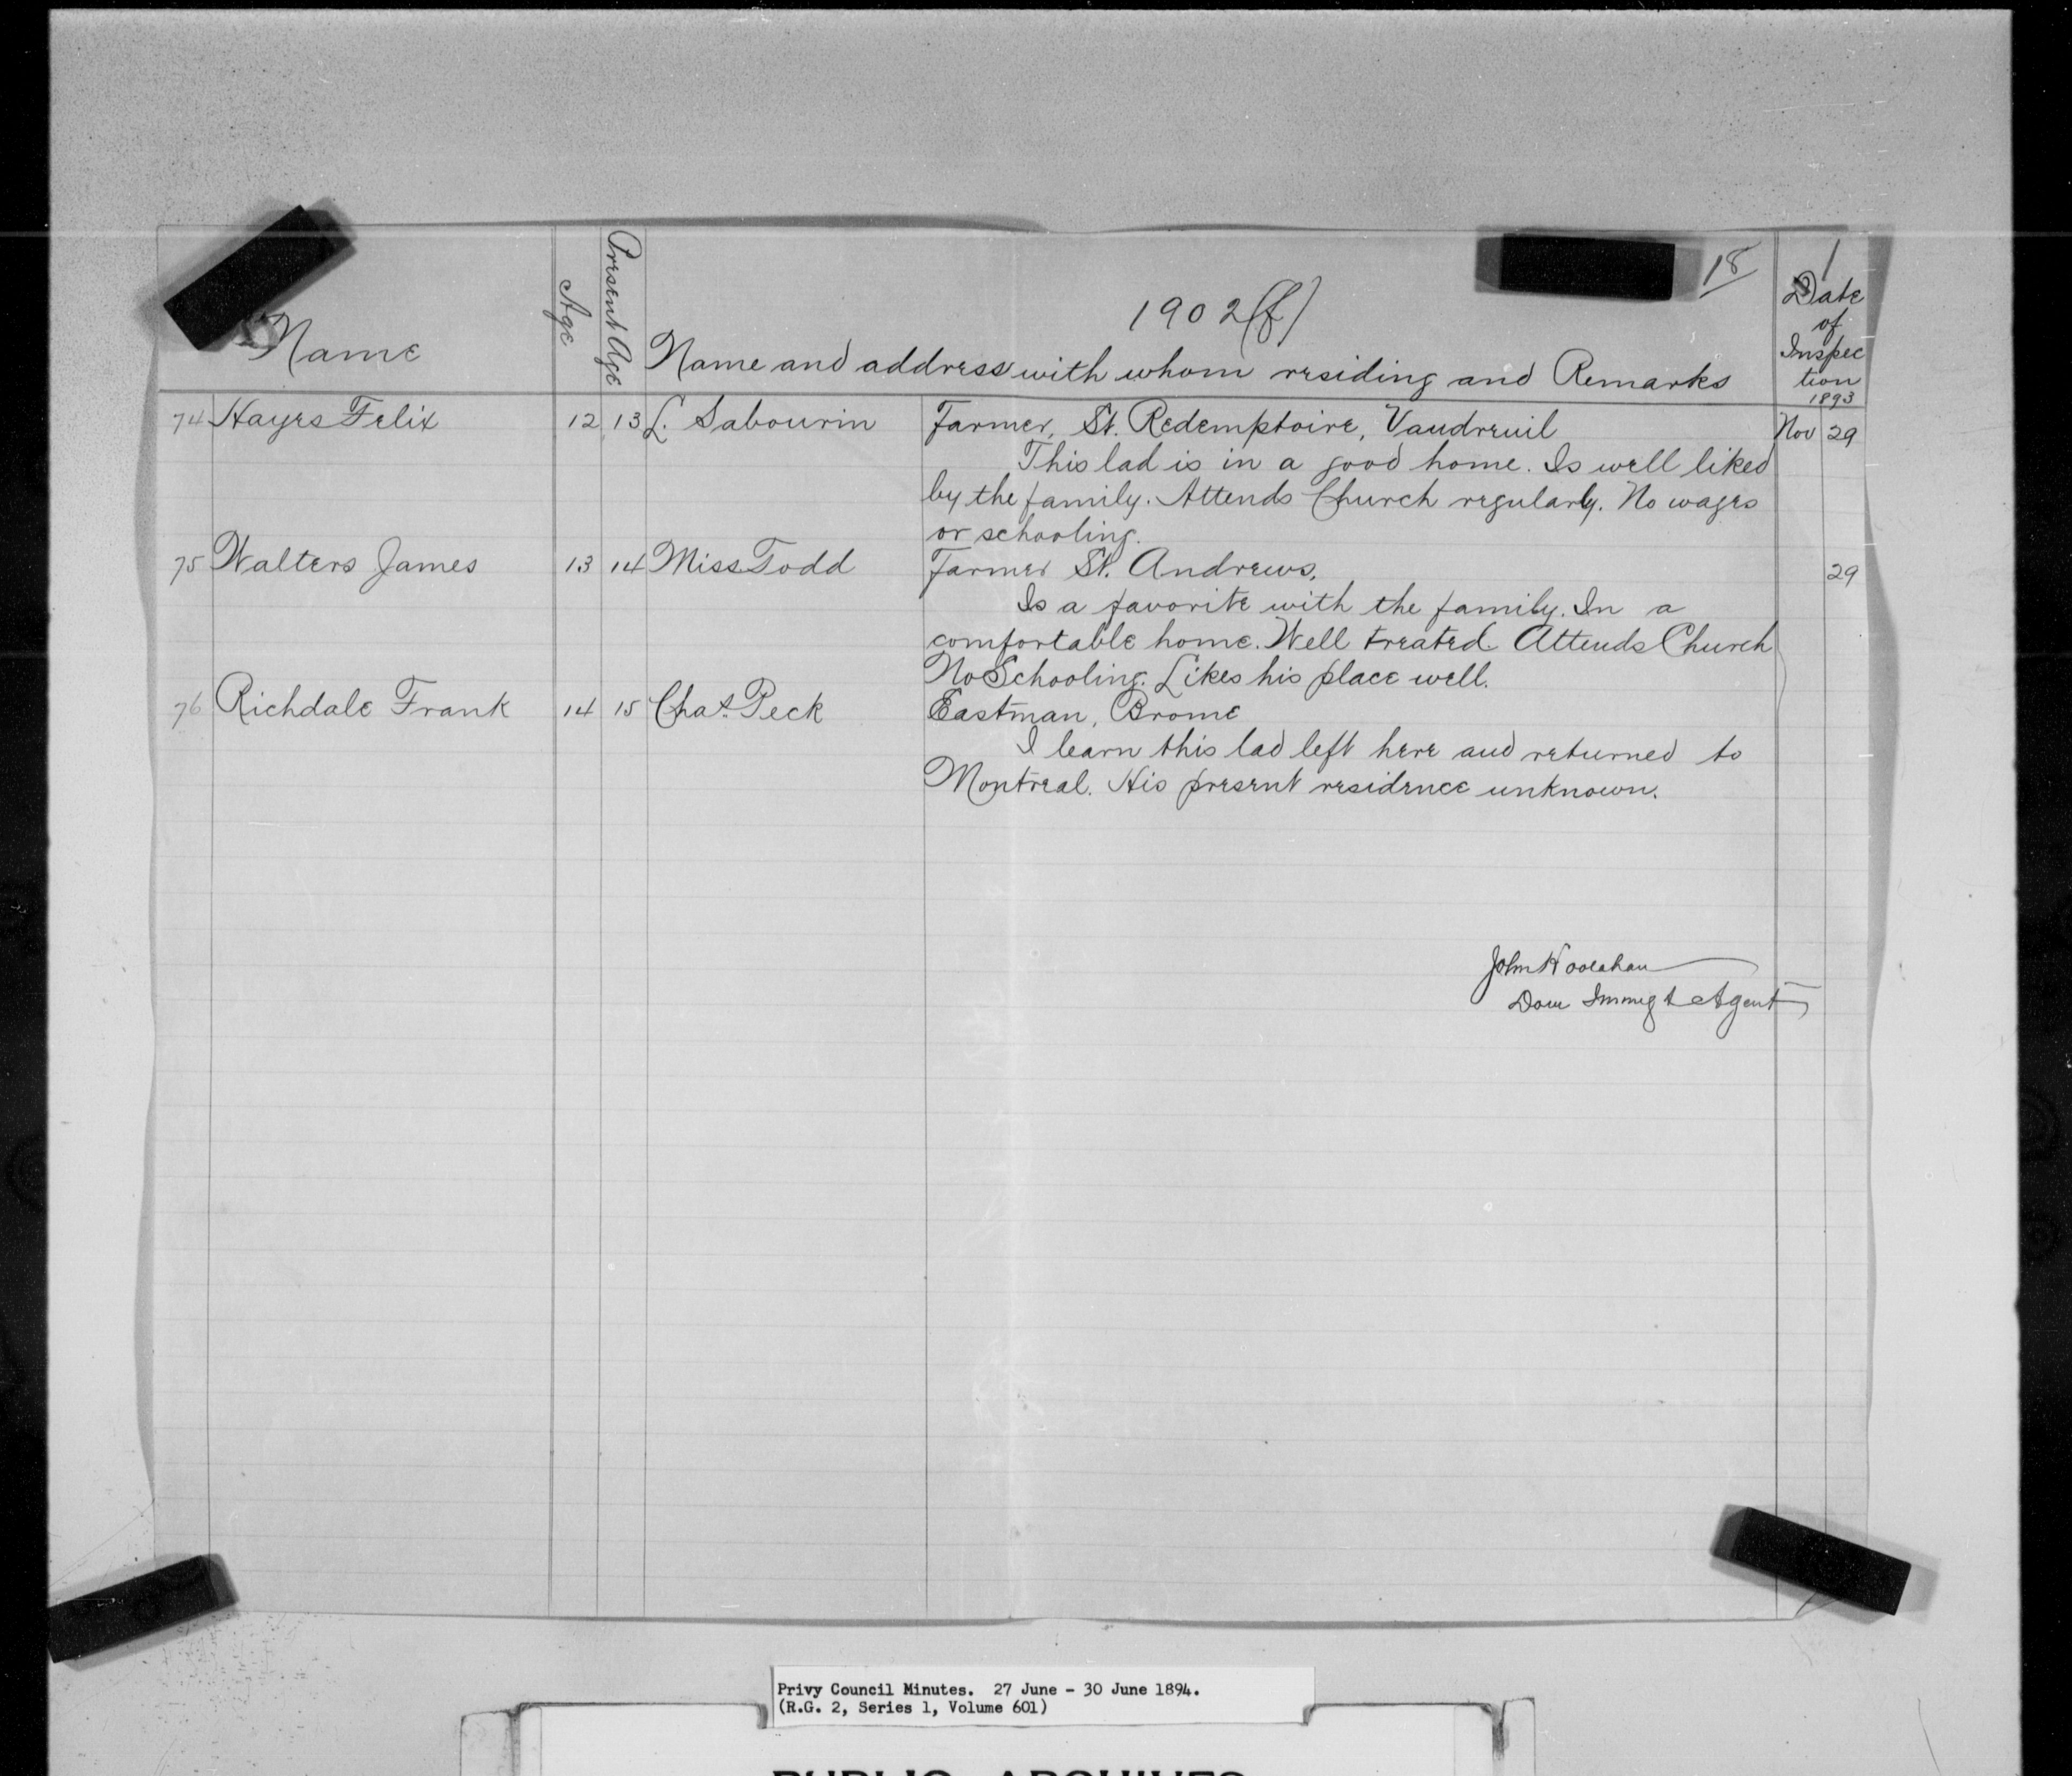 18 1
1902(f)
Name Age Present Age Name and address with whom residing and Remarks Date
of
Inspec
tion
1893
74 Hayes Felix 12 13 L. Sabourin Farmer, St. Redemptoire, Vaudreuil Nov 29
This lad is in a good home. Is well liked
by the family. Attends Church regularly. No wages
or schooling.
75 Walters James 13 14 Miss Todd Farmer St. Andrews. 29
Is a favorite with the family. In a
comfortable home. Well treated Attends Church
No Schooling. Likes his place well.
76 Richdale Frank 14 15 Chas. Peck Eastman, Brome
I learn this lad left here and returned to
Montreal. His present residence unknown.
John Hoolahan
Dom Immigt Agent
Privy Council Minutes. 27 June - 30 June 1894.
(R.G. 2, Series 1, Volume 601)
PUBLIC ARCHIVES